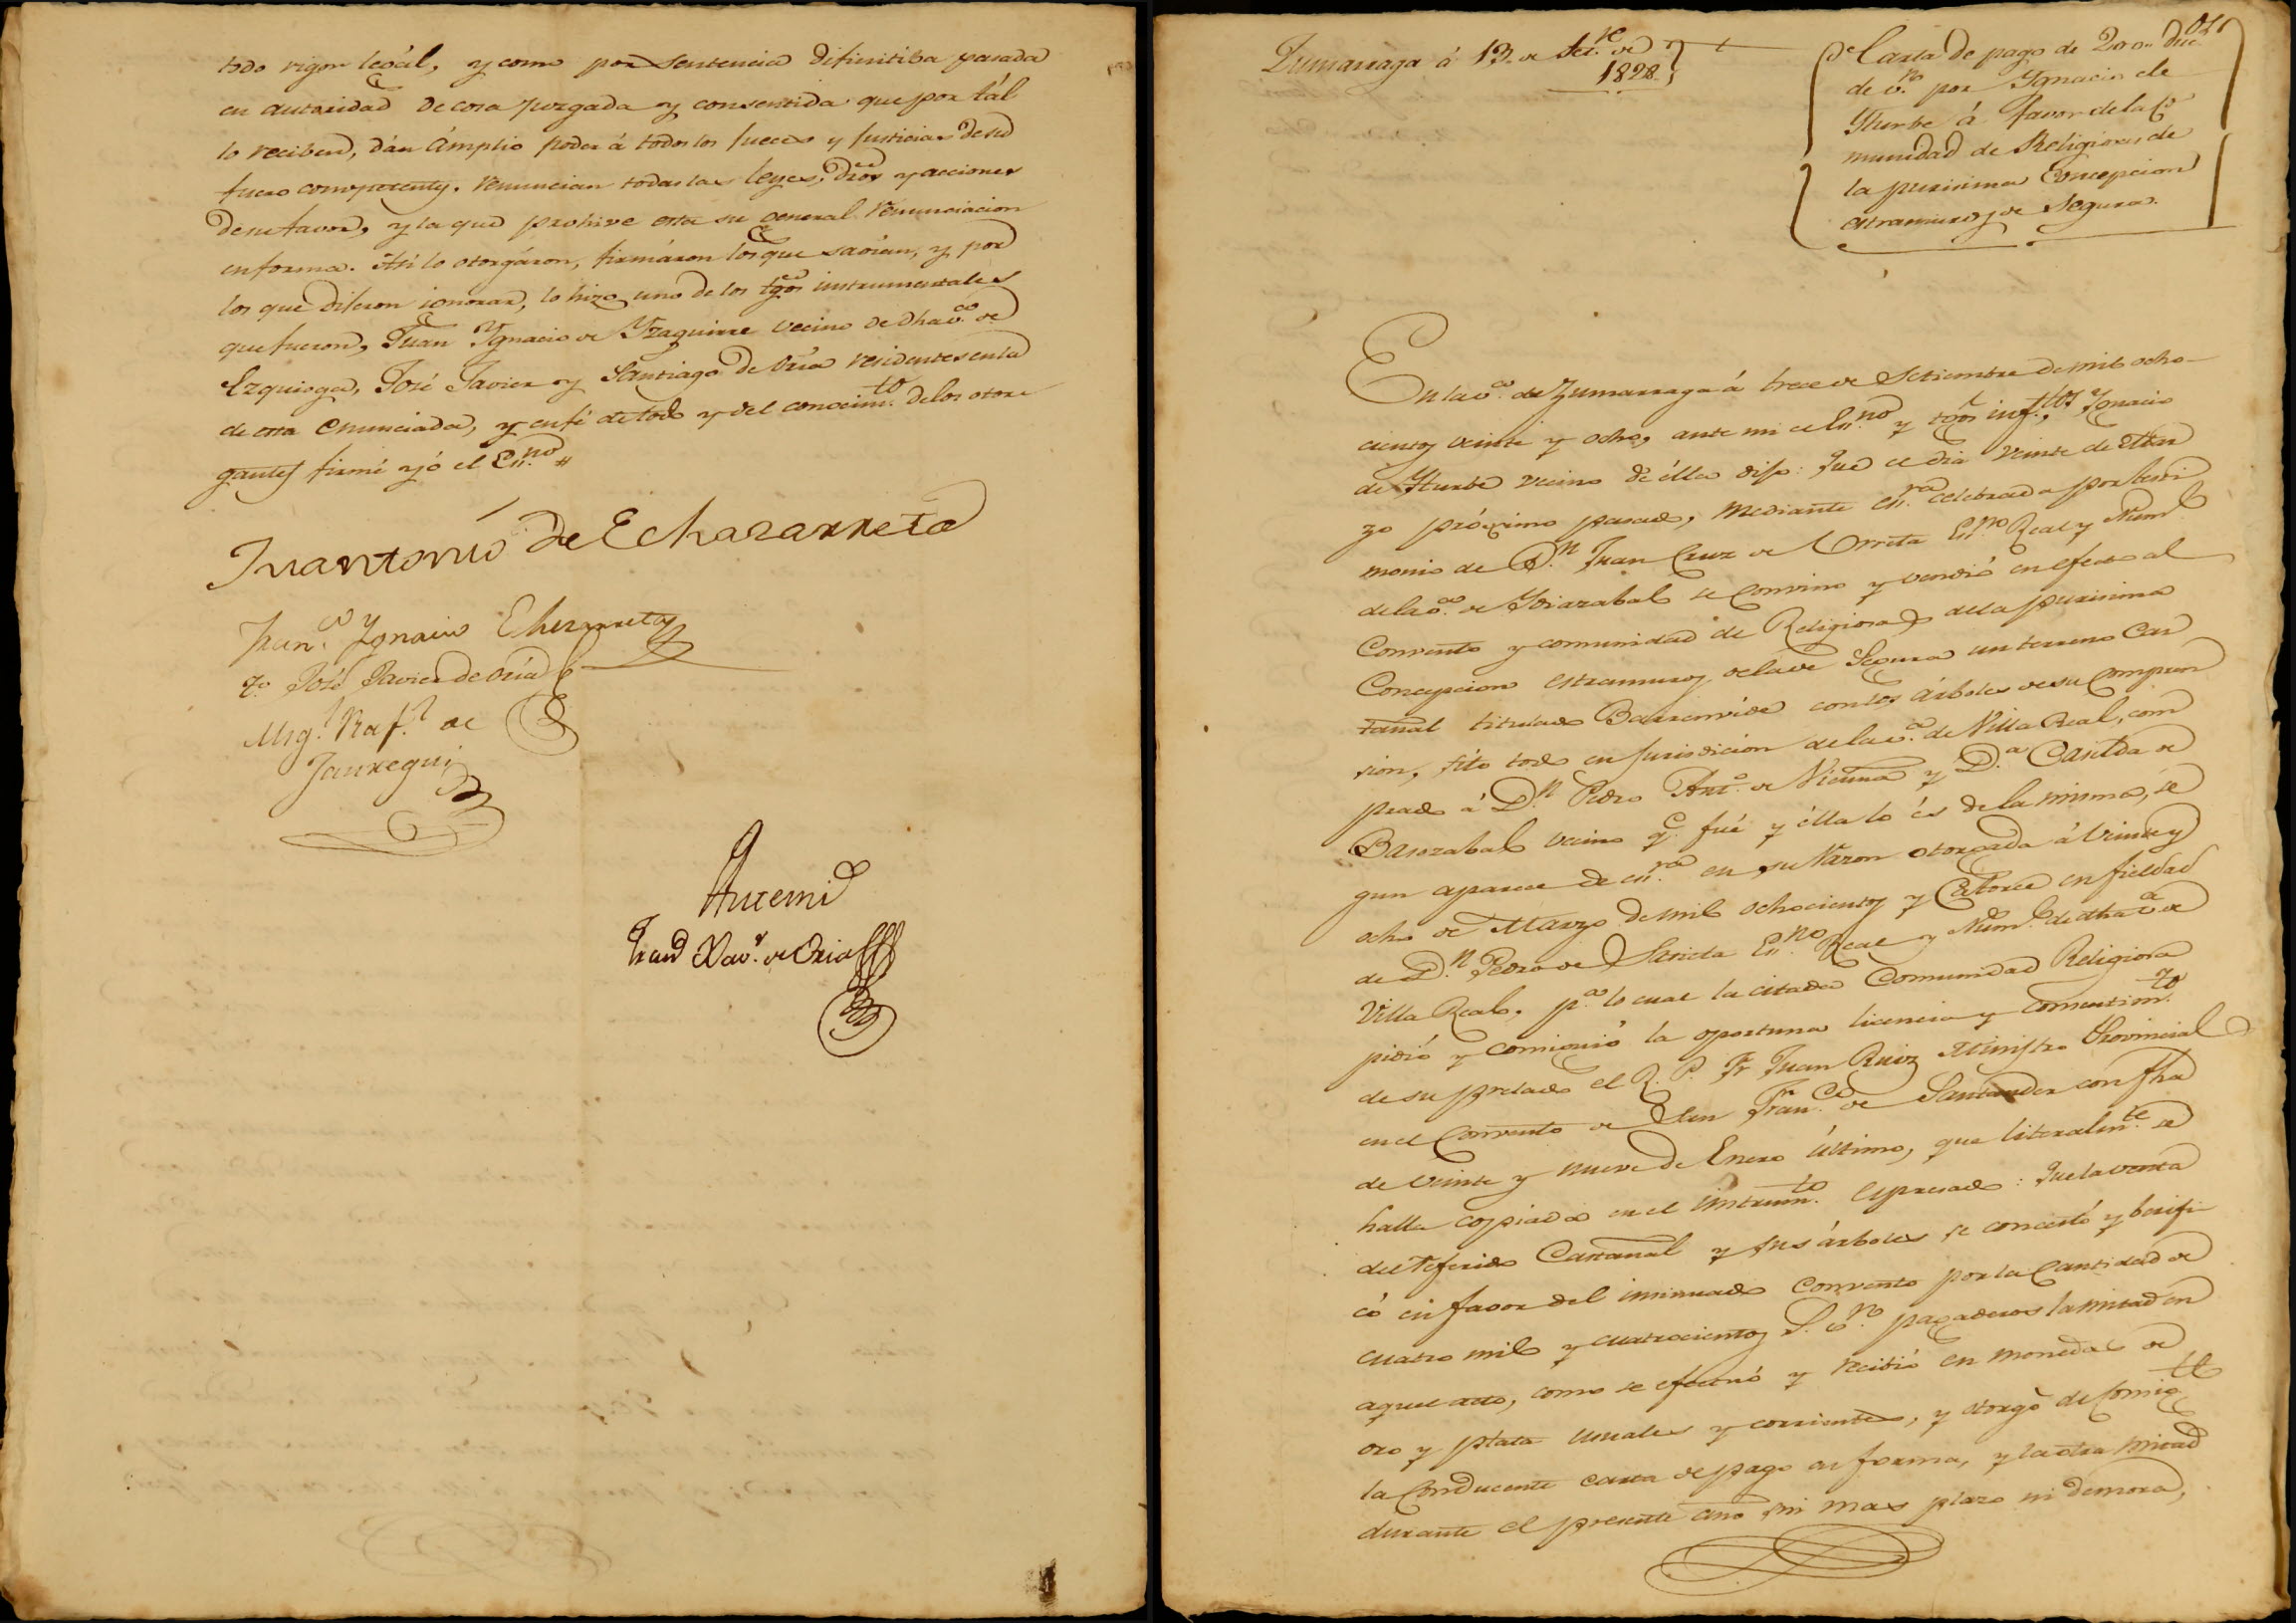 todo rigor legál, y como por sentencia difinitiba pasada
en autoridad de cosa juzgada y consentida que por tál
lo reciben, dán ámplio poder á todos los Jueces y Justicias de su
fuero competente, renuncian todas las leyes, dros y acciones
de su favor, y la que prohive esta su general renunciacion
en forma. Asi lo otorgáron, firmáron los que savian, y por
los que dijeron ignorar, lo hizo uno de los tgos instrumentales
que fueron, Juan Ygnacio de Yzaguirre vecino de dha v.ª de
Ezquioga, José Javier y Santiago de Oria residentes en la
de esta enunciada, y en fé de todo y del conocim.to de los otor-
gantes firmé yó el Es.no #
Juantonio de Echazarreta
Fran.co Ygnacio Echezarreta
t.o José Javier de Oria
Mig.l Raf.l de
Jauregui
Antemi
Fran.co Xav.r de Oria
Zumarraga á 13 de Set.re de
1828.
Carta de pago de 200 duc.os
de v.n por Ygnacio de
Yturbe á favor de la Co
munidad de Religiosas de
la purisima Concepcion
extramuros de Segura.
En la v.ª de Zumarraga á trece de Setiembre de mil ocho-
cientos veinte y ocho, ante mi el Es.no y tgos inf.tos Ygnacio
de Yturbe vecino de élla dijo: Que el dia veinte de Mar
zo próximo pasado, mediante es.ra celebrada por testi
monio de D.n Juan Cruz de Urreta Es.no Real y Num.l
de la v.ª de Ydiazabal se convino y vendió en efecto al
Convento y comunidad de Religiosas de la purisima
Concepcion extramuros de la de Segura un terreno Cas
tañal titulado Barrenvide con los árboles de su Compren
sion, sito todo en Jurisdicion de la v.ª de Villa Real, com
prado á D.n Pedro Ant.o de Vicuña y D.ª Casilda de
Basazabal vecino q.e fué y élla lo és de la misma, se
gun aparece de es.ra en su razon otorgada á veinte y
ocho de Marzo de mil ochocientos y Catorce en fieldad
de D.n Pedro de Sarieta Es.no Real y Num.l de dha v.ª de
Villa Real, p.ª lo cual la citada Comunidad Religiosa
pidió y consiguió la oportuna licencia y consentim.to
de su prelado el R. P. Fr Juan Ruiz Ministro Provincial
en el Convento de San Fran.co de Santander con fha
de veinte y nueve de Enero último, que literalm.te se
halla copiada en el instrum.to espresado: Que la venta
del referido Castañal y sus árboles se concertó y berifi-
có en favor del insinuado Convento por la Cantidad de
cuatro mil y cuatrocientos r.s v.n pagaderos la mitad en
aquel acto, como se efectuó y recibió en monedas de
oro y plata usuales y corrientes, y otorgó de consig.te
la Conducente carta de pago en forma, y la otra mitad
durante el presente año sin mas plazo ni demora,